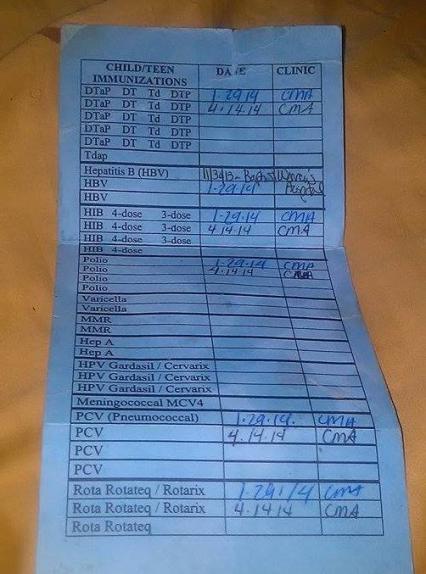 CHILD/TEEN IMMUNIZATIONS DATE CLINIC
DTaP DT Td DTP 1-29-14 CMA
DTaP DT Td DTP 4.14.14 CMA
DTaP DT Td DTP
DTaP DT Td DTP
DTaP DT Td DTP
Tdap
Hepatitis B (HBV) Women's
HBV 1-29-14 Hospital
HBV
HIB 4-dose 3-dose 1-29-14 CMA
HIB 4-dose 3-dose 4.14.14 CMA
HIB 4-dose 3-dose
HIB 4-dose
Polio 1-29-14 CMA
Polio 4-14-14 CMA
Polio
Polio
Varicella
Varicella
MMR
MMR
Hep A
Hep A
HPV Gardasil / Cervarix
HPV Gardasil / Cervarix
HPV Gardasil / Cervarix
Meningococcal MCV4
PCV (Pneumococcal) 1.29.14. CMA
PCV 4.14.14 CMA
PCV
PCV
Rota Rotateq / Rotarix 1-29-14 CMA
Rota Rotateq / Rotarix 4.14.14 CMA
Rota Rotateq